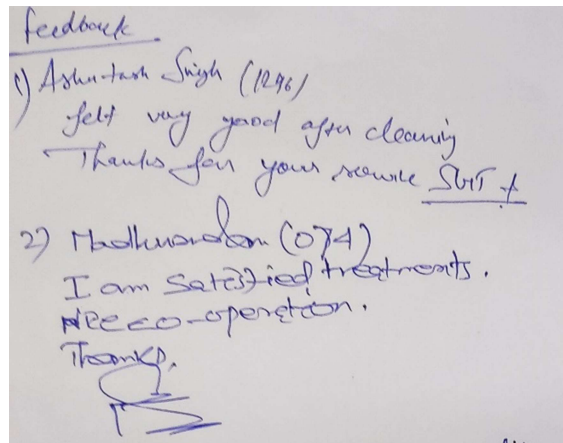 Feedback
1) Ashutosh Singh (1296)
felt very good after cleaning
Thanks for your service
2) Madhusudan (074)
I am Satisfied treatments.
co-operation.
Thanks.